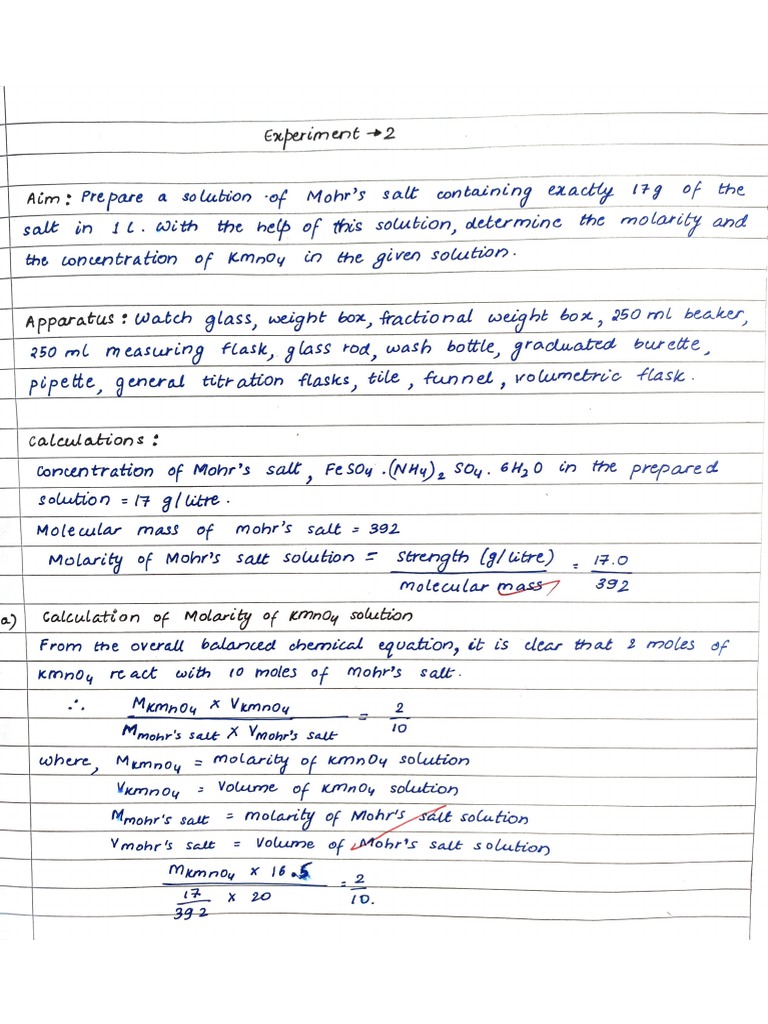 Experiment → 2
Aim : Prepare a solution of Mohr's salt containing exactly 17g of the
salt in 1 L. With the help of this solution, determine the molarity and
the concentration of KMnO4 in the given solution.
Apparatus : Watch glass, weight box, fractional weight box, 250 ml beaker,
250 ml measuring flask, glass rod, wash bottle, graduated burette,
pipette, general titration flasks, tile, funnel, volumetric flask.
Calculations :
Concentration of Mohr's salt, FeSO4 . (NH4)2 SO4 . 6H2O in the prepared
solution = 17 g/litre.
Molecular mass of mohr's salt = 392
Molarity of Mohr's salt solution = strength (g/litre) / molecular mass = 17.0 / 392
a) Calculation of Molarity of KMnO4 solution
From the overall balanced chemical equation, it is clear that 2 moles of
KMnO4 react with 10 moles of mohr's salt.
∴ MKMnO4 × VKMnO4 / Mmohr's salt × Vmohr's salt = 2 / 10
where, MKMnO4 = molarity of KMnO4 solution
VKMnO4 = Volume of KMnO4 solution
Mmohr's salt = molarity of Mohr's salt solution
Vmohr's salt = Volume of Mohr's salt solution
MKMnO4 × 16.5 / 17/392 × 20 = 2 / 10.